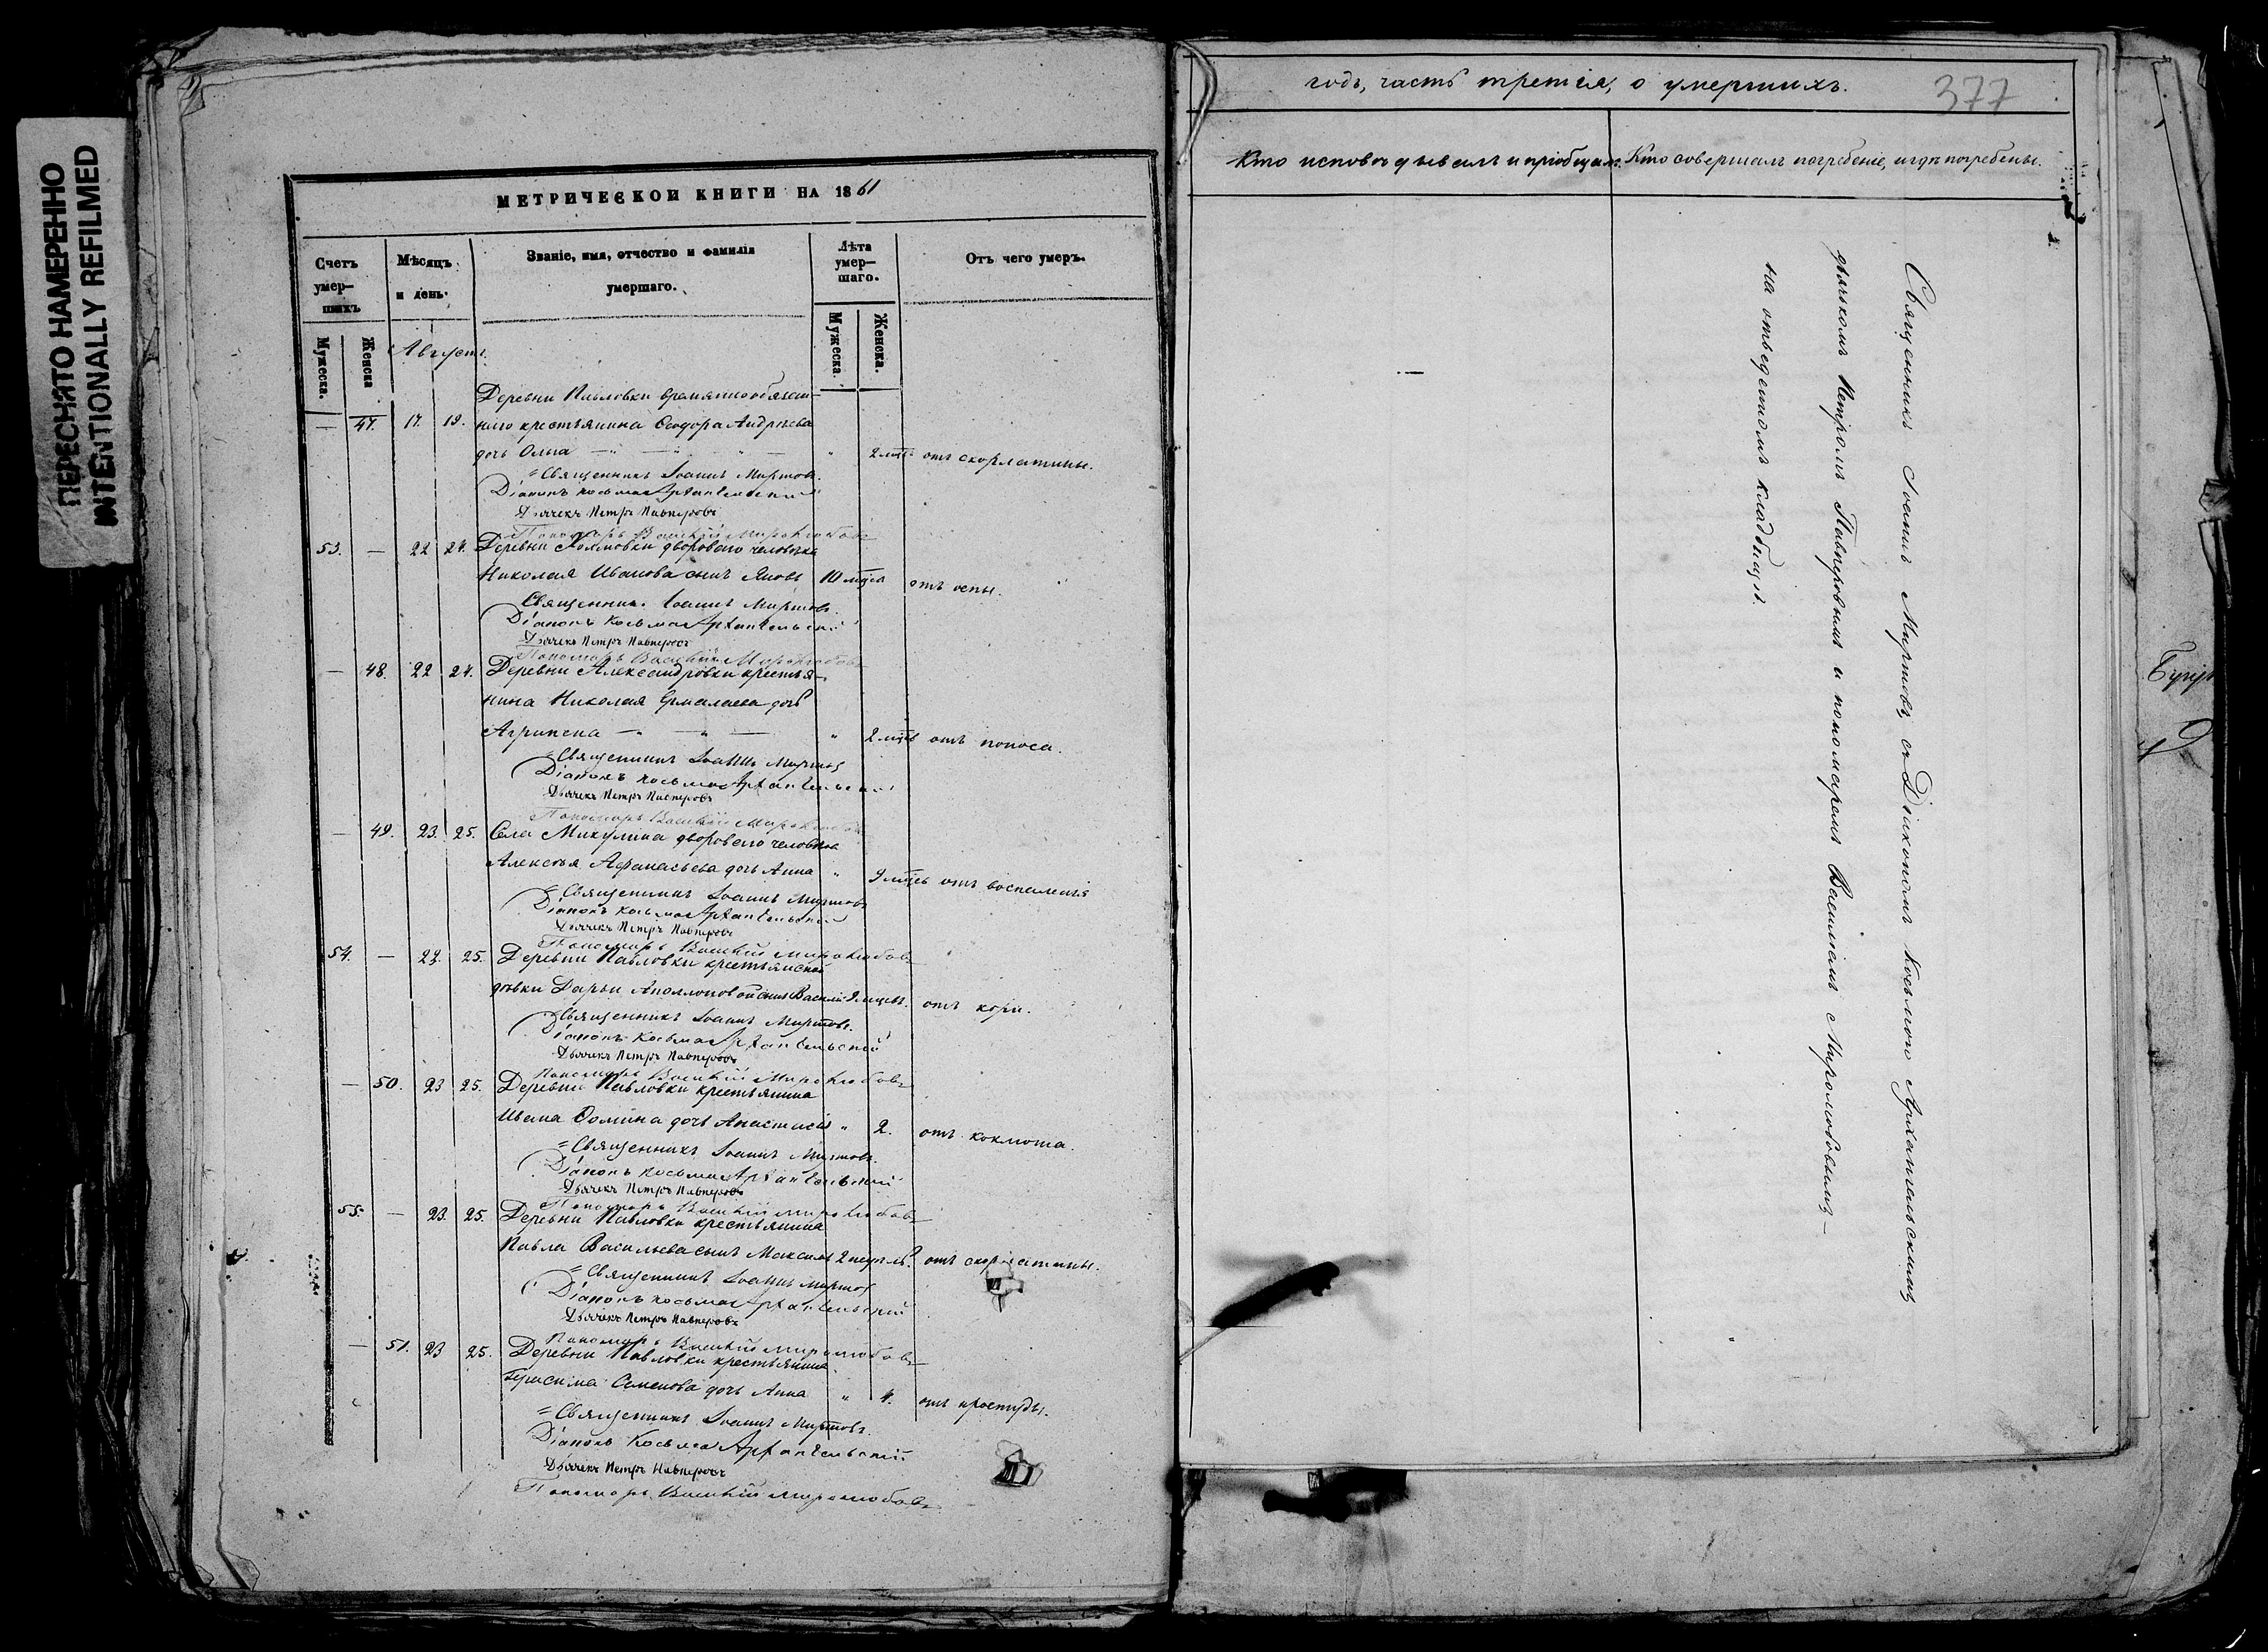 ПЕРЕСНЯТО НАМЕРЕННО
INTENTIONALLY REFILMED
МЕТРИЧЕСКОЙ КНИГИ НА 1861
Счетъ умер-шихъ
Мѣсяцъ и день.
Званіе, имя, отчество и фамилія умершаго.
Лѣта умер-шаго.
Отъ чего умеръ.
Мужеска.
Женска
Мужеска.
Женска.
Августъ.
Деревни Павловки временнообязан-
— 47. 17. 19. наго крестьянина Ѳеодора Андреева
дочь Ольга — „ — „ — „ 2 лѣтъ отъ скорлатины.
Священникъ Іоаннъ Миртовъ.
Діаконъ Косьма Архангельскій
Дьячекъ Петръ Павперовъ
Пономарь Василій Миролюбовъ
53. — 22 24. Деревни дворового человѣка
Николая Иванова сынъ Яковъ 10 мѣсц. отъ оспы.
Священникъ Іоаннъ Миртовъ.
Діаконъ Косьма Архангельскій
Дьячекъ Петръ Павперовъ
Пономарь Василій Миролюбовъ
— 48. 22 24. Деревни Александровки крестья-
нина Николая Ермалаева дочь
Агрипена — „ — „ 2 мѣсц. отъ поноса.
Священникъ Іоаннъ Миртовъ
Діаконъ Косьма Архангельскій
Дьячекъ Петръ Павперовъ
Пономарь Василій Миролюбовъ
— 49. 23. 25. Села Микулина дворового человѣка
Алексѣя Афанасьева дочь Анна „ 9 мѣсц. отъ воспаленія
Священникъ Іоаннъ Миртовъ
Діаконъ Косьма Архангельскій
Дьячекъ Петръ Павперовъ
Пономарь Василій Миролюбовъ
54. — 22. 25. Деревни Павловки крестьянской
дѣвки Дарьи Аполлоновой сынъ Василій 9 мѣсц. отъ кори.
Священникъ Іоаннъ Миртовъ.
Діаконъ Косьма Архангельскій
Дьячекъ Петръ Павперовъ
Пономарь Василій Миролюбовъ
— 50. 23 25. Деревни Павловки крестьянина
Ивана Ѳомина дочь Анастасія „ 2. отъ коклюша.
Священникъ Іоаннъ Миртовъ.
Діаконъ Косьма Архангельскій
Дьячекъ Петръ Павперовъ
Пономарь Василій Миролюбовъ
55. — 23. 25. Деревни Павловки крестьянина
Павла Васильева сынъ Максимъ 2 недѣль. отъ скорлатины.
Священникъ Іоаннъ Миртовъ
Діаконъ Косьма Архангельскій
Дьячекъ Петръ Павперовъ
Пономарь Василій Миролюбовъ
— 51. 23 25. Деревни Павловки крестьянина
Герасима Семенова дочь Анна „ 4. отъ простуды.
Священникъ Іоаннъ Миртовъ.
Діаконъ Косьма Архангельскій
Дьячекъ Петръ Павперовъ
Пономарь Василій Миролюбовъ
годъ, часть третія, о умершихъ.
377
Кто исповѣдывалъ и пріобщалъ.
Кто совершалъ погребеніе, и гдѣ погребены.
—
Священникъ Іоаннъ Миртовъ, съ Діакономъ Косьмою Архангельскимъ,
дьячкомъ Петромъ Павперовымъ и пономаремъ Василіемъ Миролюбовымъ —
на отведенномъ кладбищѣ.